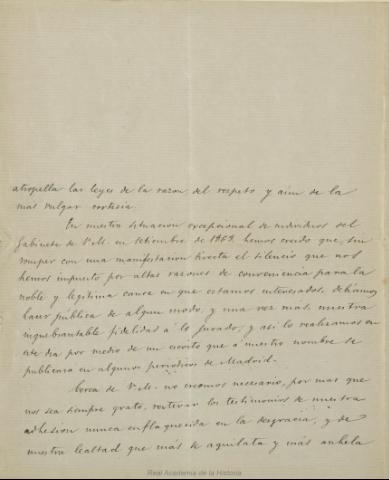 atropella las leyes de la razon, del respeto y aún de la
mas vulgar cortesía.
En nuestra situacion excepcional de individuos del
Gabinete de V.M. en Setiembre de 1868, hemos creido que, sin
romper con una manifestacion directa el silencio que nos
hemos impuesto por altas razones de conveniencia para la
noble y legítima causa en que estamos interesados, debíamos
hacer pública de algun modo, y una vez más, nuestra
inquebrantable fidelidad á lo jurado, y así lo realizamos en
este dia por medio de un escrito que á nuestro nombre se
publicará en algunos periódicos de Madrid.
Cerca de V.M. no creemos necesario, por mas que
nos sea siempre grato, reiterar los testimonios de nuestra
adhesion nunca enflaquecida en la desgracia, y de
nuestra lealtad que más se aquilata y más anhela
Real Academia de la Historia